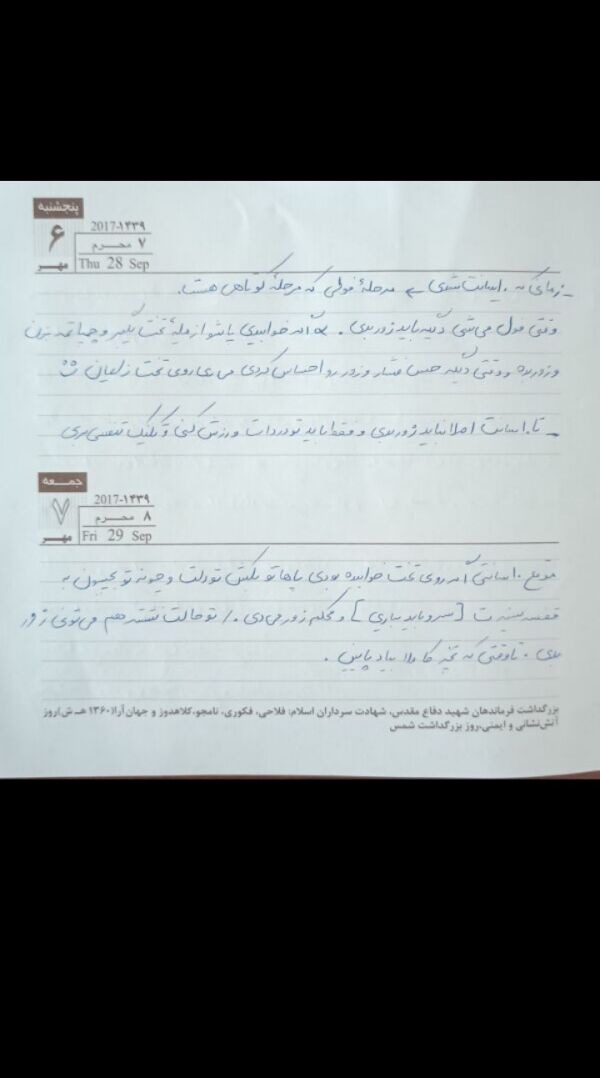 پنجشنبه
۶
مهر
2017-۱۴۳۹
۷ محرم
Thu 28 Sep
ـ زمانی که ۱۰ سانت شدی ← مرحلهٔ فولی که مرحلهٔ کوتاهی هست.
وقتی فول می‌شی دیگه باید زور بدی. که اگه خوابیدی پاشو از میلهٔ تخت بگیر و چمباتمه بزن
و زور بده و وقتی دیگه حس فشار و زور رو احساس کردی می‌ری روی تخت زایمان
ـ تا ۱۰ سانت اصلا نباید زور بدی و فقط باید تو دردات ورزش کنی و تکنیک تنفسی بری
جمعه
۷
مهر
2017-۱۴۳۹
۸ محرم
Fri 29 Sep
موقع ۱۰ سانتی اگه روی تخت خوابیده بودی پاهاتو بکش تو دلت و چونه تو بچسبون به
قفسه سینه‌ت [سرو باید بیاری] و محکم زور می‌دی. / تو حالت نشسته هم می‌تونی زور
بدی. تا وقتی که بچه کاملا بیاد پایین.
بزرگداشت فرماندهان شهید دفاع مقدس، شهادت سرداران اسلام: فلاحی، فکوری، نامجو، کلاهدوز و جهان آرا(۱۳۶۰ هـ ش)/روز
آتش‌نشانی و ایمنی،روز بزرگداشت شمس